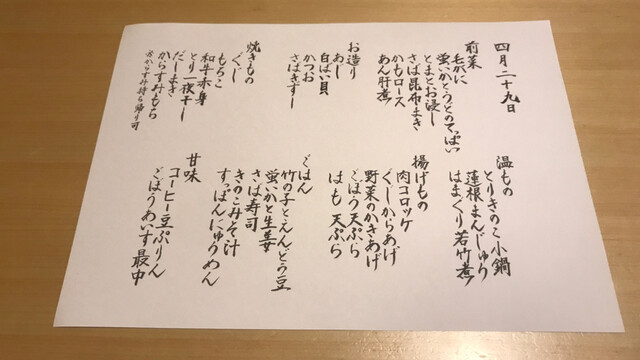 四月二十九日
前菜
毛がに
蛍いかとうどのてっぱい
とまとお浸し
さば昆布まき
かもロース
あん肝煮
お造り
あじ
白ばい貝
かつお
さばきずし
焼きもの
ぐじ
もろこ
和牛赤身
とり一夜干し
だしまき
からすみもち
※からすみ持ち帰り可
温もの
とりきのこ小鍋
蓮根まんじゅう
はまぐり若竹煮
揚げもの
肉コロッケ
ぐじからあげ
野菜のかきあげ
ごぼう天ぷら
はも天ぷら
ごはん
竹の子とえんどう豆
蛍いかと生姜
さば寿司
きのこみそ汁
すっぽんにゅうめん
甘味
コーヒー豆ぷりん
ごぼうあいす最中